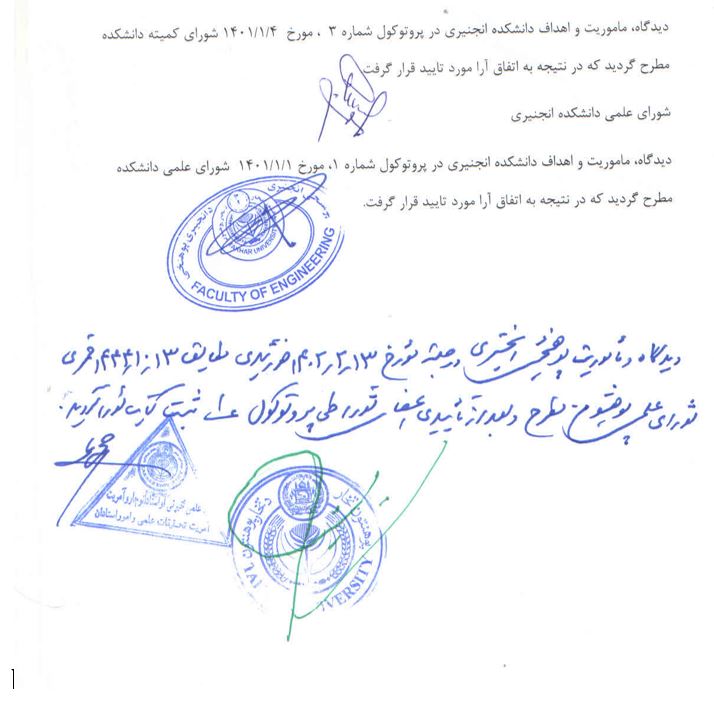 دیدگاه، ماموریت و اهداف دانشکده انجنیری در پروتوکول شماره ۳ ، مورخ ۱۴۰۱/۱/۴ شورای کمیته دانشکده
مطرح گردید که در نتیجه به اتفاق آرا مورد تایید قرار گرفت
شورای علمی دانشکده انجنیری
دیدگاه، ماموریت و اهداف دانشکده انجنیری در پروتوکول شماره ۱، مورخ ۱۴۰۱/۱/۱ شورای علمی دانشکده
مطرح گردید که در نتیجه به اتفاق آرا مورد تایید قرار گرفت.
پوهنځی انجنیری
د انجنیری پوهنځی
TAKHAR UNIVERSITY
FACULTY OF ENGINEERING
دیدگاه و مأموریت پوهنځی انجنیری در جلسه مؤرخ ۱۴۰۲٫۲٫۱۳ خورشیدی مطابق ۱۴۴۴٫۱۰٫۱۳ قمری
شورای علمی پوهنتون مطرح و بعد از تأییدی اعضای شورا طی پروتوکول ثبت کتاب شورا گردید.
علمی
آمریت تحقیقات علمی و امور استادان
پوهنتون تخار
د تخار پوهنتون
UNIVERSITY